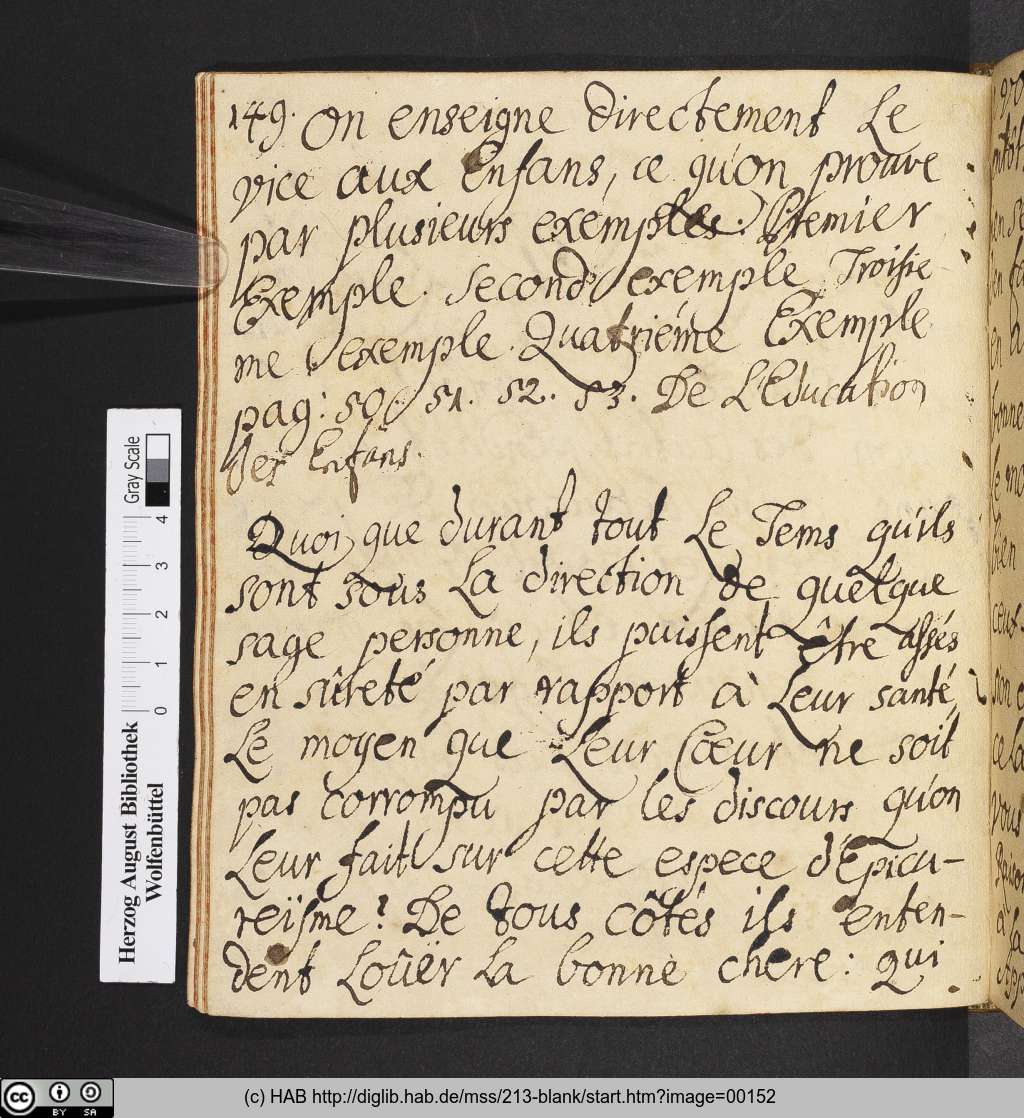 149. On enseigne directement Le
vice aux Enfans, ce qu'on prouve
par plusieurs exemples. Premier
Exemple. Second exemple Troisie-
me exemple. Quatriéme Exemple
pag: 50. 51. 52. 53. De L'Education
des Enfans.
Quoi que durant tout Le Tems qu'ils
sont sous La direction de quelque
sage personne, ils puissent être assés
en sûreté par rapport à Leur santé,
Le moyen que Leur Cœur ne soit
pas corrompu par les discours qu'on
Leur fait sur cette espece d'Epicu-
reïsme? De tous côtés ils enten-
dent Loüer La bonne chere: qui
Herzog August Bibliothek
Wolfenbüttel
Gray Scale
0 1 2 3 4
(c) HAB http://diglib.hab.de/mss/213-blank/start.htm?image=00152
cc BY SA